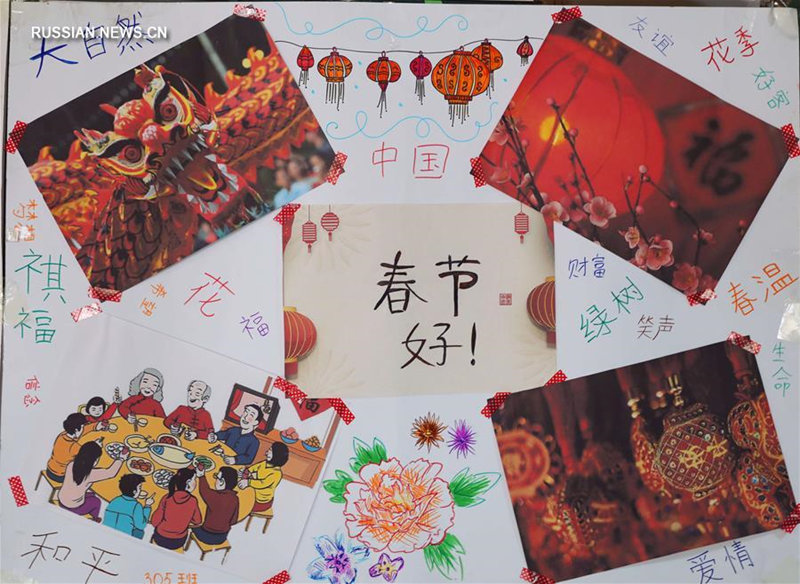 RUSSIAN NEWS.CN
大自然
友谊
花季
好客
中国
福
梦想
祺福
希望
花
福
春节
好！
财富
绿树
笑声
春温
生命
信念
和平
305班
爱情